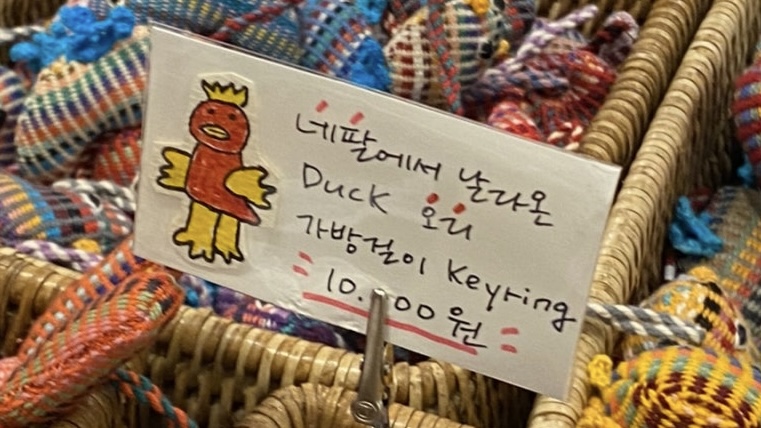 네팔에서 날라온
Duck 오리
가방걸이 Keyring
10.000원